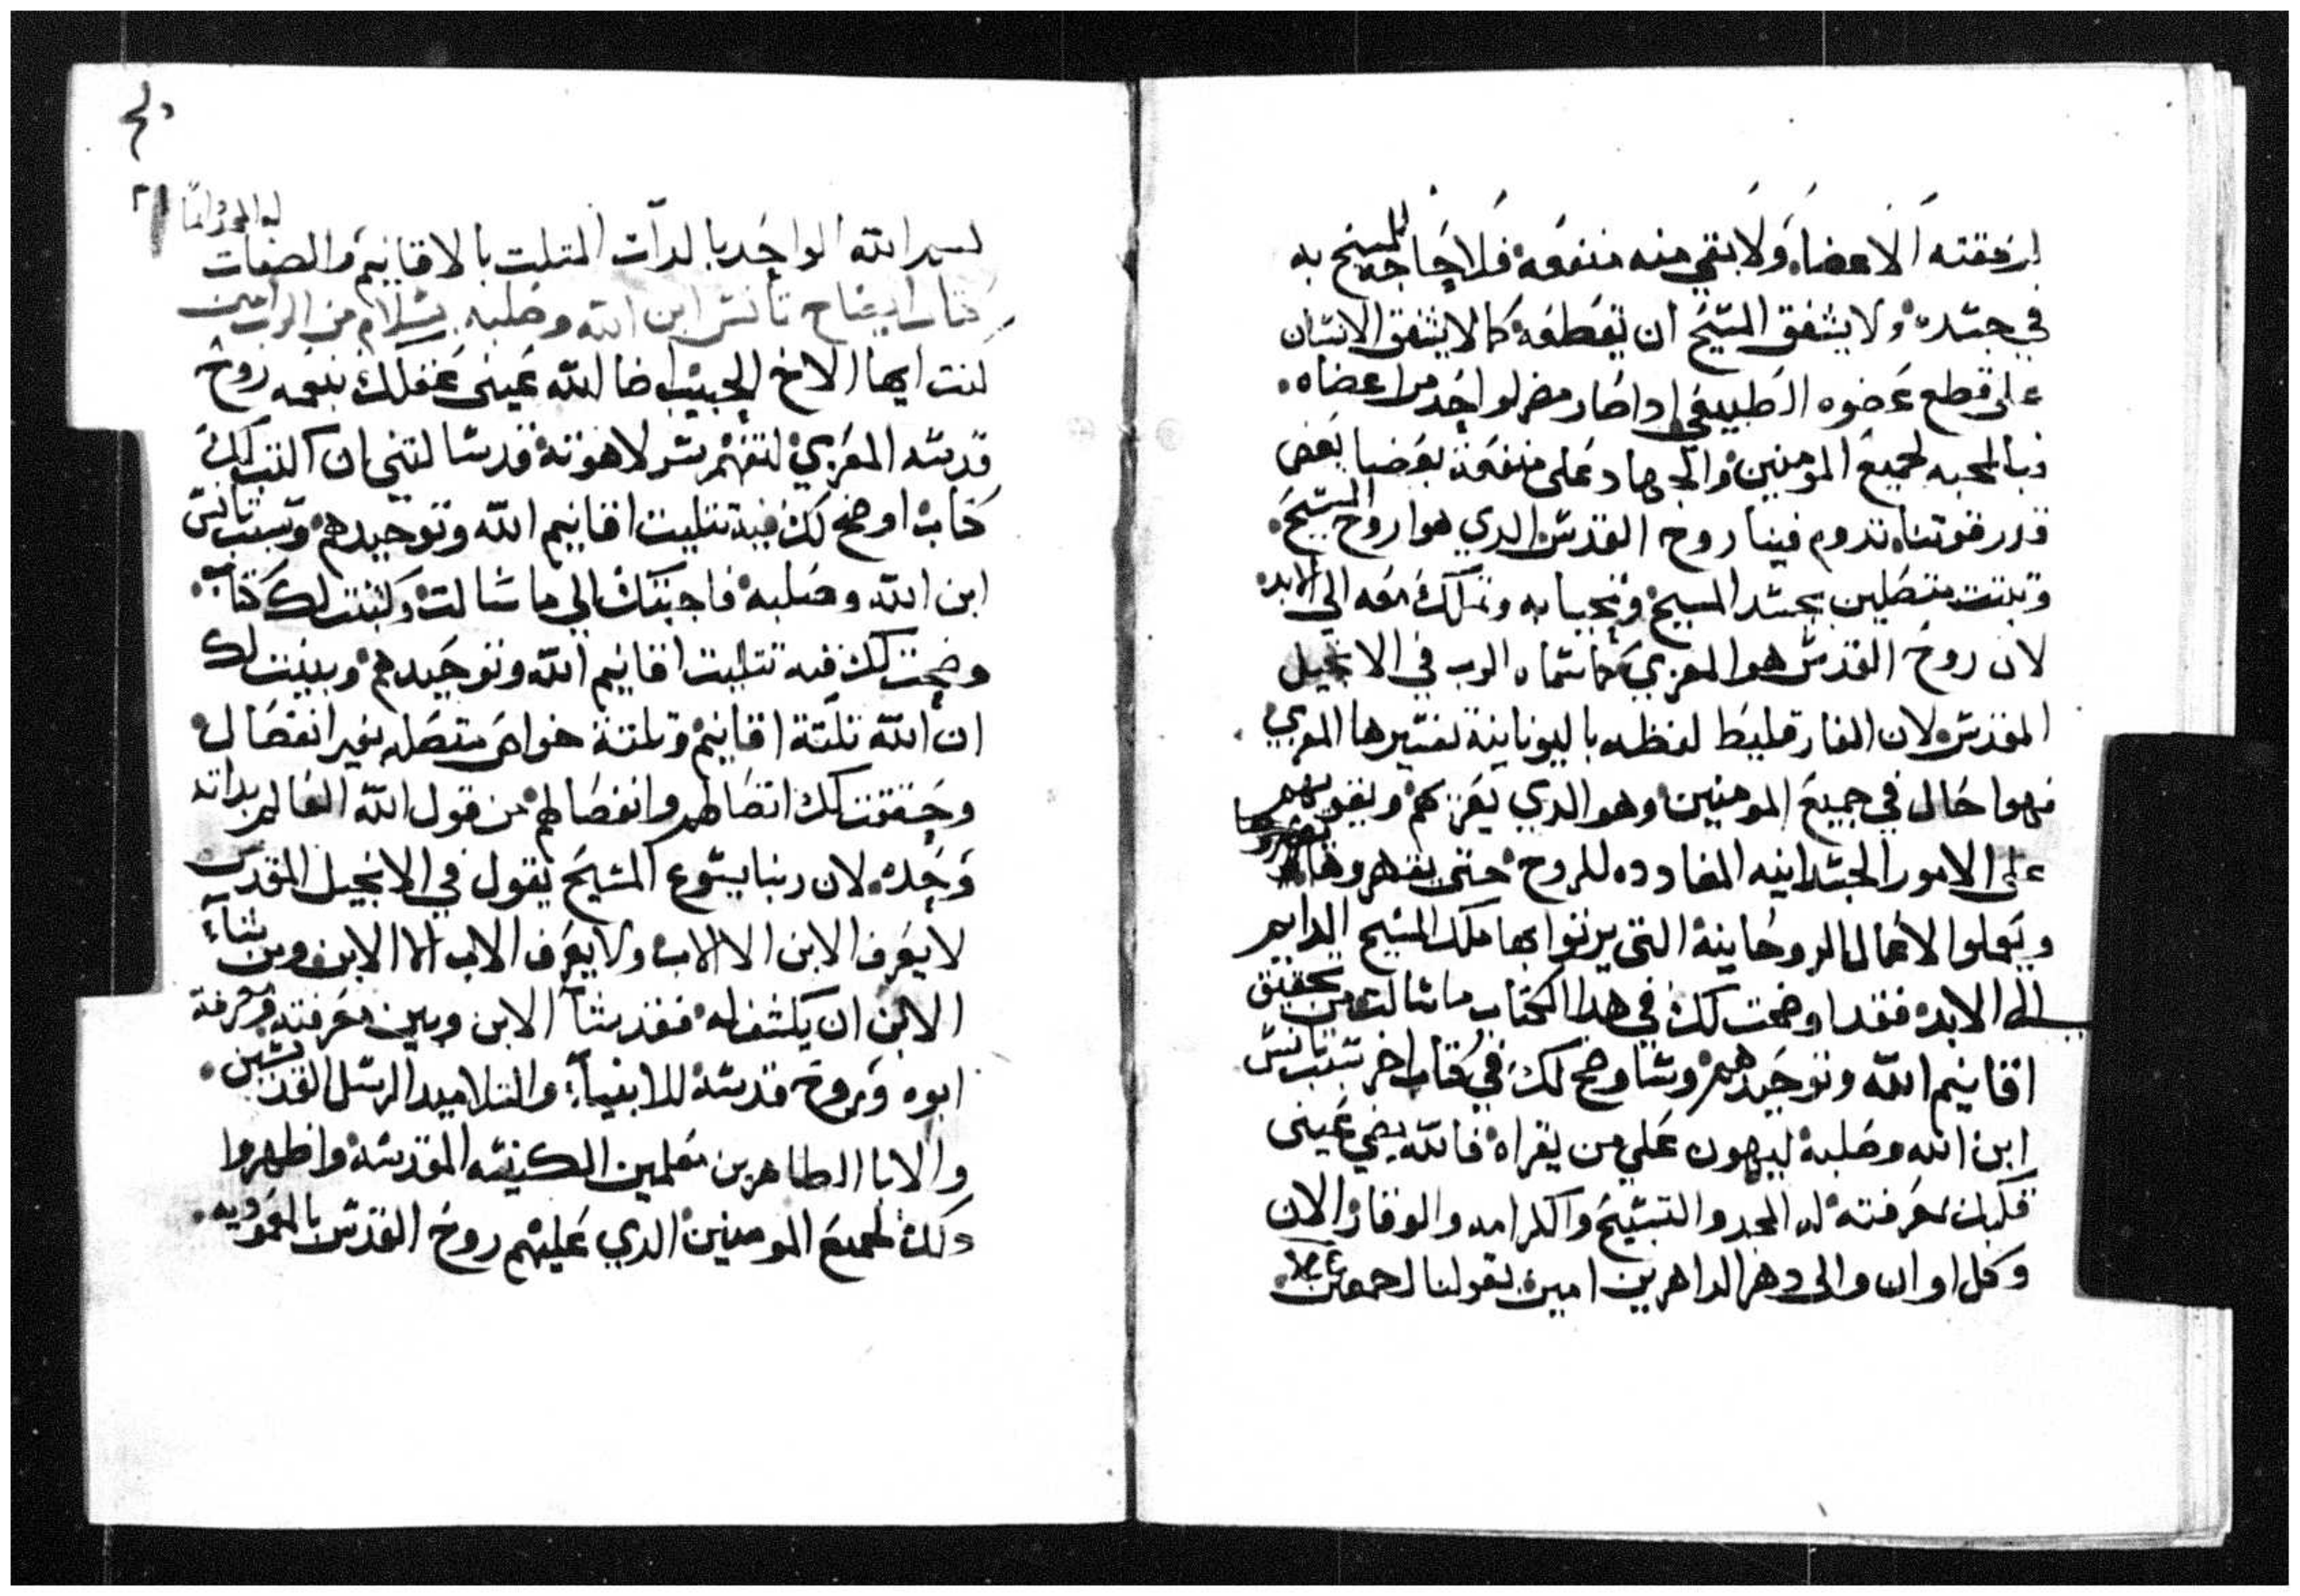 لرفقته الاعضاء ولا بقي منه منفعة فلا حاجه للمسيح به
في جسده ولا يشفق المسيح ان يقطعه كما لا يشفق الانسان
على قطع عضوه الطبيعي اذا صار مضر لواحد من اعضاه
فبالمحبه لجميع المومنين والجهاد على منفعة بعضنا بعض
قدر قوتنا تدوم فينا روح القدس الدي هوا روح المسيح
ونثبت متصلين بجسد المسيح ونحيا به ونملك معه الى الابد
لان روح القدس هو المعزي كما سماه الرب في الانجيل
المقدس لان الفارقليط لفظه باليونانية تفسيرها المعزي
فهوا حال في جميع المومنين وهو الدي يعزيهم ويقويهم
على الامور الجسدانيه المضادده للروح حتى يقهروها
ويعملوا الاعمال الروحانية التي يرتوا بها ملك المسيح الدايم
الى الابد فقد اوضحت لك في هدا الكتاب ما سالت من تحقيق
اقانيم الله وتوحيدهم وسا وضح لك في كتاب اخر سبب تانس
ابن الله وصلبه ليهون على من يقراه فالله يضي عيني
قلبك بمعرفته له المجد والتسبيح والكرامه والوقار الان
وكل اوان والى دهر الداهرين امين يقولنا اجمعين
٢١
له المجد دايما
بسم الله الواحد بالدات المتلت بالاقانيم والصفات
كتاب ايضاح تانس ابن الله وصلبه بسلام من الرب امين
كنت ايها الاخ الحبيب اضا الله عيني عقلك بنعمه روح
قدسه المعزي لتفهم سر لاهوته قد سالتني ان اكتب لك
كتاب اوضح لك فيه تتليت اقانيم الله وتوحيدهم وسبب تانس
ابن الله وصلبه فاجبتك الى ما سالت وكتبت لك كتاب
وضحت لك فيه تتليت اقانيم الله وتوحيدهم وبينت لك
ان الله تلتة اقانيم وتلتة خواص متصله بغير انفصال
وحققت لك اتصالهم وانفصالهم من قول الله العالم بداته
وحده لان ربنا يسوع المسيح يقول في الانجيل المقدس
لا يعرف الابن الا الاب ولا يعرف الاب الا الابن ومن شاء
الابن ان يكشف له فقد شاء الابن وبين معرفته ومعرفة
ابوه وروح قدسه للانبياء والتلاميد الرسل القديسين
والابا الطاهرين معلمين الكنيسه المقدسة واظهروا
دلك لجميع المومنين الدي عليهم روح القدس بالمعموديه